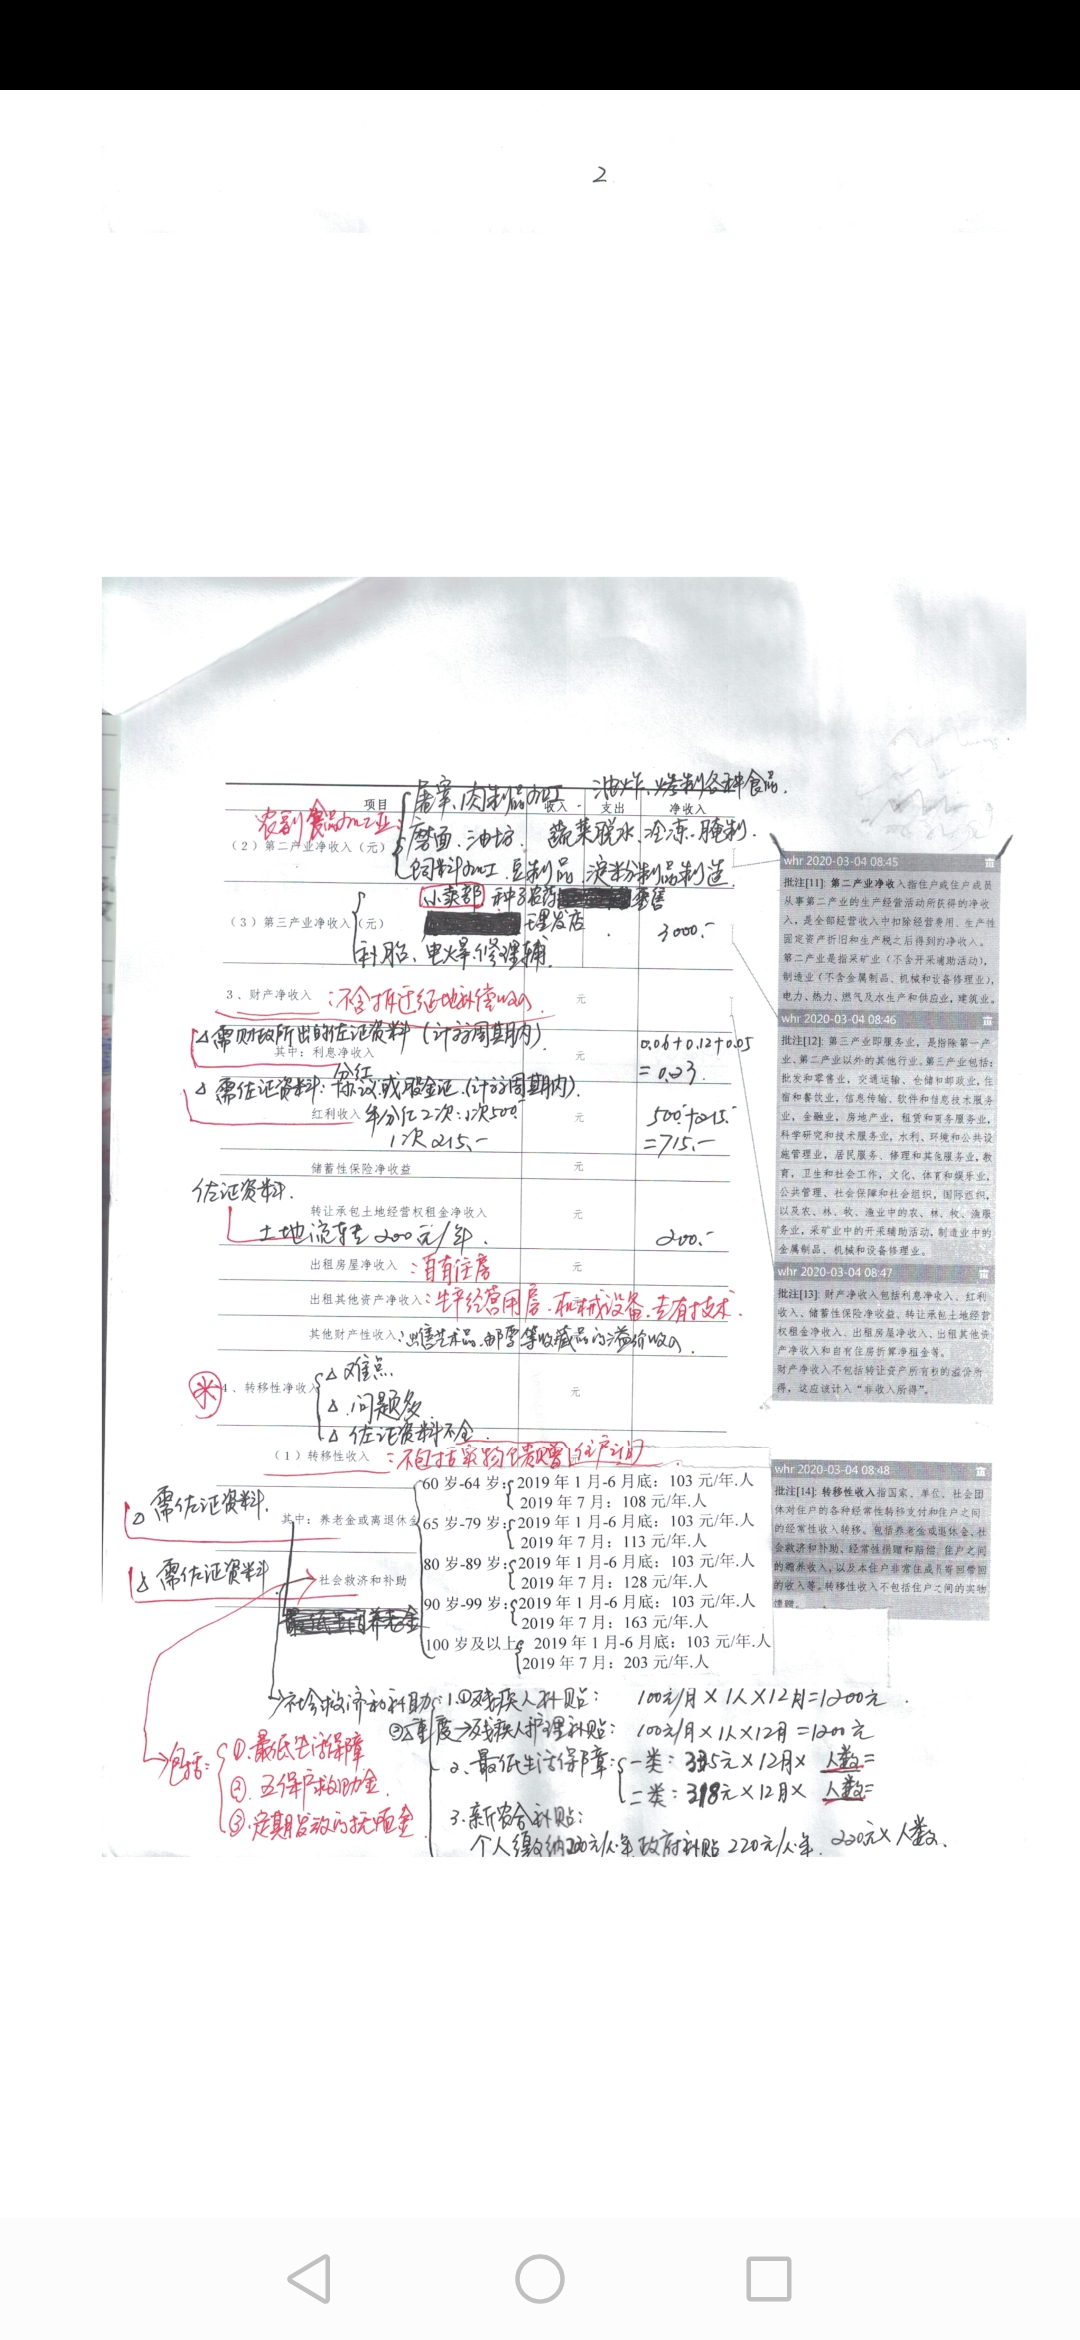 2
屠宰、肉制品加工 油炸、爆制各种食品.
项目 收入 支出 净收入
农副食品加工业:
磨面、油坊. 蔬菜脱水、冷冻、腌制.
(2)第二产业净收入(元)
饲料加工、豆制品、淀粉制品制造.
小卖部 种子农药 零售
理发店
(3)第三产业净收入(元) 3000.-
补胎、电焊、修理铺.
3、财产净收入:不含拆迁征地补偿收入 元
△需财政所出的佐证资料(计访周期内)
其中:利息净收入 元 0.06+0.12+0.05
=0.23.
分红
△需佐证资料:协议或股金证.(计访周期内).
红利收入 年分红2次:1次500.- 元 500.-+215.-
1次215.- =715.-
储蓄性保险净收益 元
佐证资料.
转让承包土地经营权租金净收入 元
土地流转200元/年. 200.-
出租房屋净收入:自有住房 元
出租其他资产净收入:生产经营用房、机械设备、专有技术.
其他财产性收入:出售艺术品、邮票等收藏品的溢价收入.
4、转移性净收入 元
△难点
△.问题多
△佐证资料不全.
(1)转移性收入:不包括实物馈赠(住户之间).
60岁-64岁: 2019年1月-6月底:103元/年.人
2019年7月:108元/年.人
△需佐证资料.
其中:养老金或离退休金
65岁-79岁: 2019年1月-6月底:103元/年.人
2019年7月:113元/年.人
80岁-89岁: 2019年1月-6月底:103元/年.人
2019年7月:128元/年.人
△需佐证资料
社会救济和补助
90岁-99岁: 2019年1月-6月底:103元/年.人
2019年7月:163元/年.人
100岁及以上 2019年1月-6月底:103元/年.人
2019年7月:203元/年.人
社会救济和补助:1.①残疾人补贴: 100元/月×1人×12月=1200元.
②重度→残疾人护理补贴: 100元/月×1人×12月=1200元
2、最低生活保障: 一类:335元×12月×人数=
二类:318元×12月×人数=
3.新农合补贴:
个人缴纳200元/人.年,政府补贴220元/人.年. 220元×人数.
包括:
①.最低生活保障
②.五保户救助金.
③.定期发放的抚恤金
whr 2020-03-04 08:45
批注[11]: 第二产业净收入指住户或住户成员
从事第二产业的生产经营活动所获得的净收
入,是全部经营收入中扣除经营费用、生产性
固定资产折旧和生产税之后得到的净收入。
第二产业是指采矿业(不含开采辅助活动),
制造业(不含金属制品、机械和设备修理业),
电力、热力、燃气及水生产和供应业,建筑业。
whr 2020-03-04 08:46
批注[12]: 第三产业即服务业,是指除第一产
业、第二产业以外的其他行业。第三产业包括:
批发和零售业,交通运输、仓储和邮政业,住
宿和餐饮业,信息传输、软件和信息技术服务
业,金融业,房地产业,租赁和商务服务业,
科学研究和技术服务业,水利、环境和公共设
施管理业,居民服务、修理和其他服务业,教
育,卫生和社会工作,文化、体育和娱乐业,
公共管理、社会保障和社会组织,国际组织,
以及农、林、牧、渔业中的农、林、牧、渔服
务业,采矿业中的开采辅助活动,制造业中的
金属制品、机械和设备修理业。
whr 2020-03-04 08:47
批注[13]: 财产净收入包括利息净收入、红利
收入、储蓄性保险净收益、转让承包土地经营
权租金净收入、出租房屋净收入、出租其他资
产净收入和自有住房折算净租金等。
财产净收入不包括转让资产所有权的溢价所
得,这应该计入“非收入所得”。
whr 2020-03-04 08:48
批注[14]: 转移性收入指国家、单位、社会团
体对住户的各种经常性转移支付和住户之间
的经常性收入转移。包括养老金或退休金、社
会救济和补助、经常性捐赠和赔偿、住户之间
的赡养收入,以及本住户非常住成员寄回带回
的收入等。转移性收入不包括住户之间的实物
馈赠。